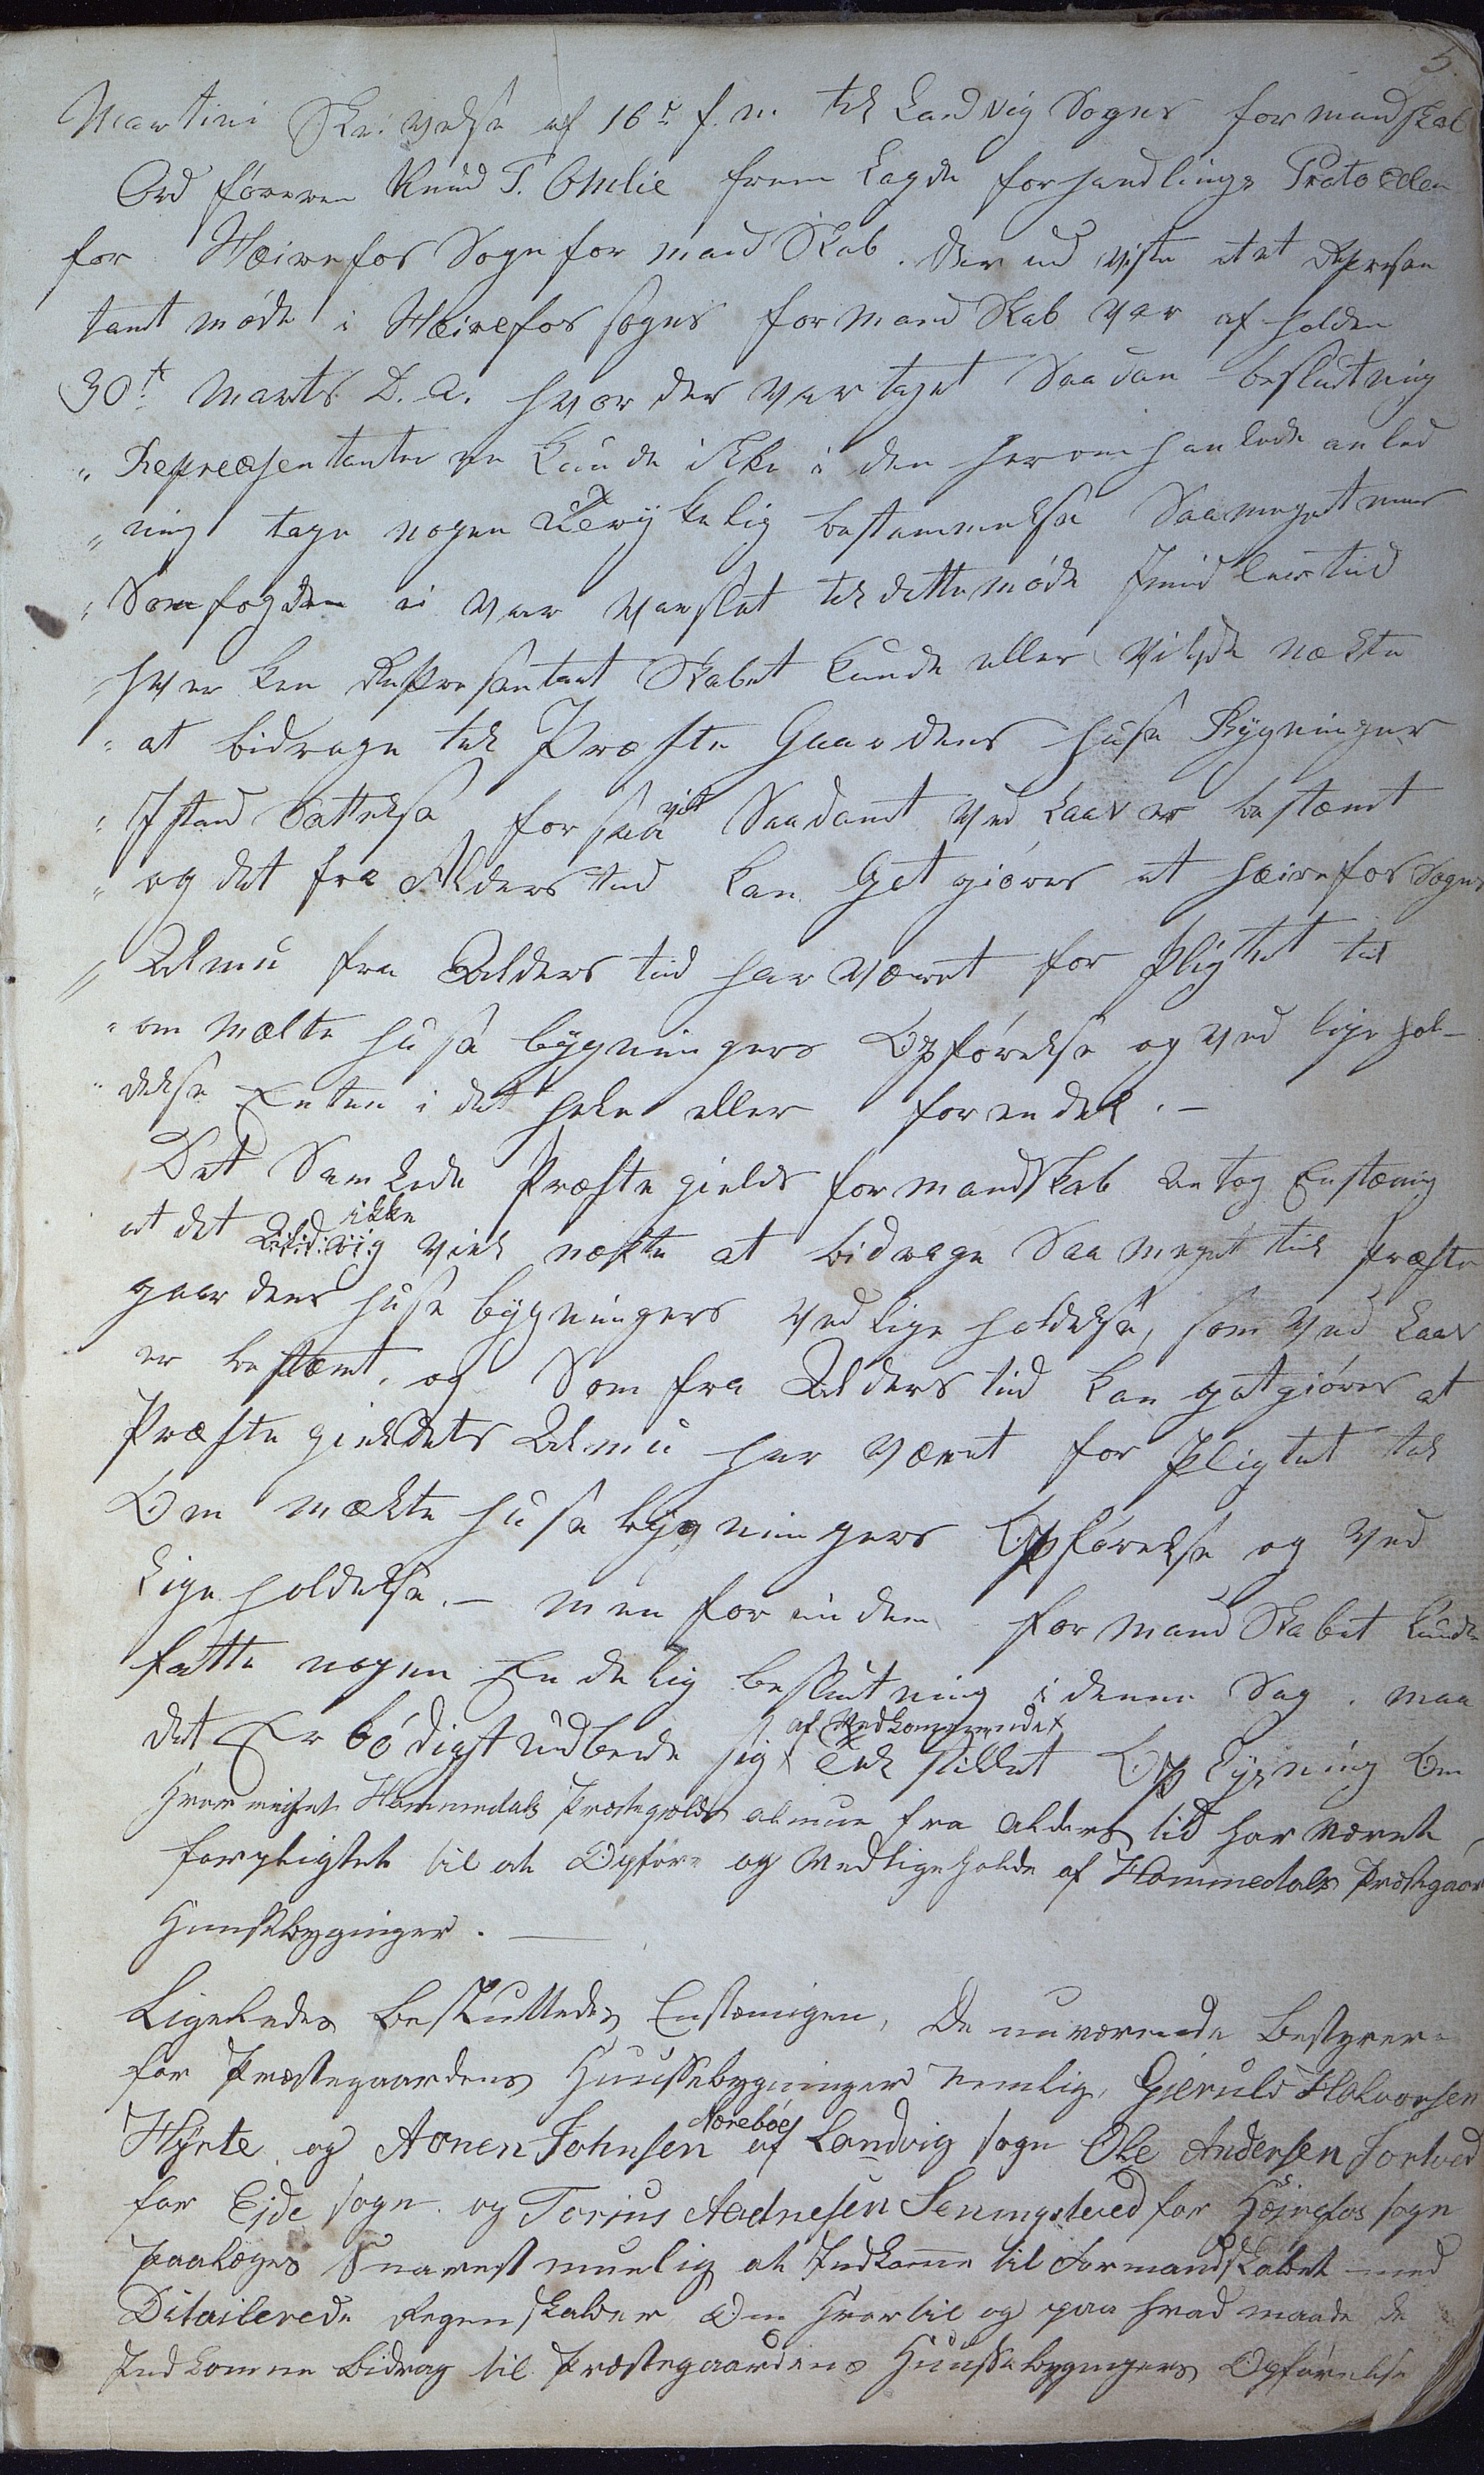 5
Martini Skrivelse af 16de f. m. til Landvig Sogns formandskab
Ord føreren Knud T. Omlie frem lagde forhandlings Protocollen
for Hæirefos Sogn for mand Skab. Der ud viste at et Represen
tant møde i Hæirefos sogns for mand Skab var af holden
30te Marts D. A. hvor der var taget Saadan beslutning
" Repræsentanterne kunde ikke i den her om handlede anled
" ning tage nogen bestemmelse Saameget mer
" Som fogden ei var varslet til dette møde Imidlertiid
hverken Representant Skabet kunde eller vilde nækte
" at bidrage til Præste Gaardens huse Bygninger
" Istand Sættelse for saa vit Saadant ved Laav er bestæmt
" og det fra Alders tiid kan Got giøres at Hæirefos Sogns
" Almu fra Alders tiid har været for pligtet til
" om mælte huse bygningers Opførelse og ved lige hol-
" delse Enten i det hele eller for en del. -
Det Samlede Præste gields formandskab ved tog Enstæmig
at det ikke viil nækte at bidrage Saa meget til Præste
gaardens huse bygningers vedlige holdelse, som ved Laav
er bestæmt, og Som fra Alders tiid kan got giøres at
Præste gieldets Almu har været for pligtet til
Om mælte huse bygningers Opførelse og ved
lige holdelse. - men for inden for mand Skabet kunde
fatte nogen Endelig beslutning i denne Sag. maa
det Er bødigst udbede sig af Vedkommende Til stillet Op lysning Om
Hvor meget Hommedals Præstegields almue fra alders tid har været
forpligtet til at Opføre og Vedligeholde af Hommedals Præstegaar
Huusebyginger. -
Ligeledes besluttedes Enstemigen, De nuværende Bestyrere
for Præstegaardens Huussebygninger Nemlig, Gieruld Halvorsen
Hørte og Aanen Johnsen Nørebøe af Landvig sogn Ole Andersen Fortved
for Eide sogn og Torius Aadnesen Senumstved for Høirefos sogn
paalæges Snarest muelig at Indkomme til Formandskabet med
Ditailerede Regenskaber Om Hvortil og paa hvad maade de
Indkomne Bidrag til Præstegaardens Huussebyggingers Opførelse